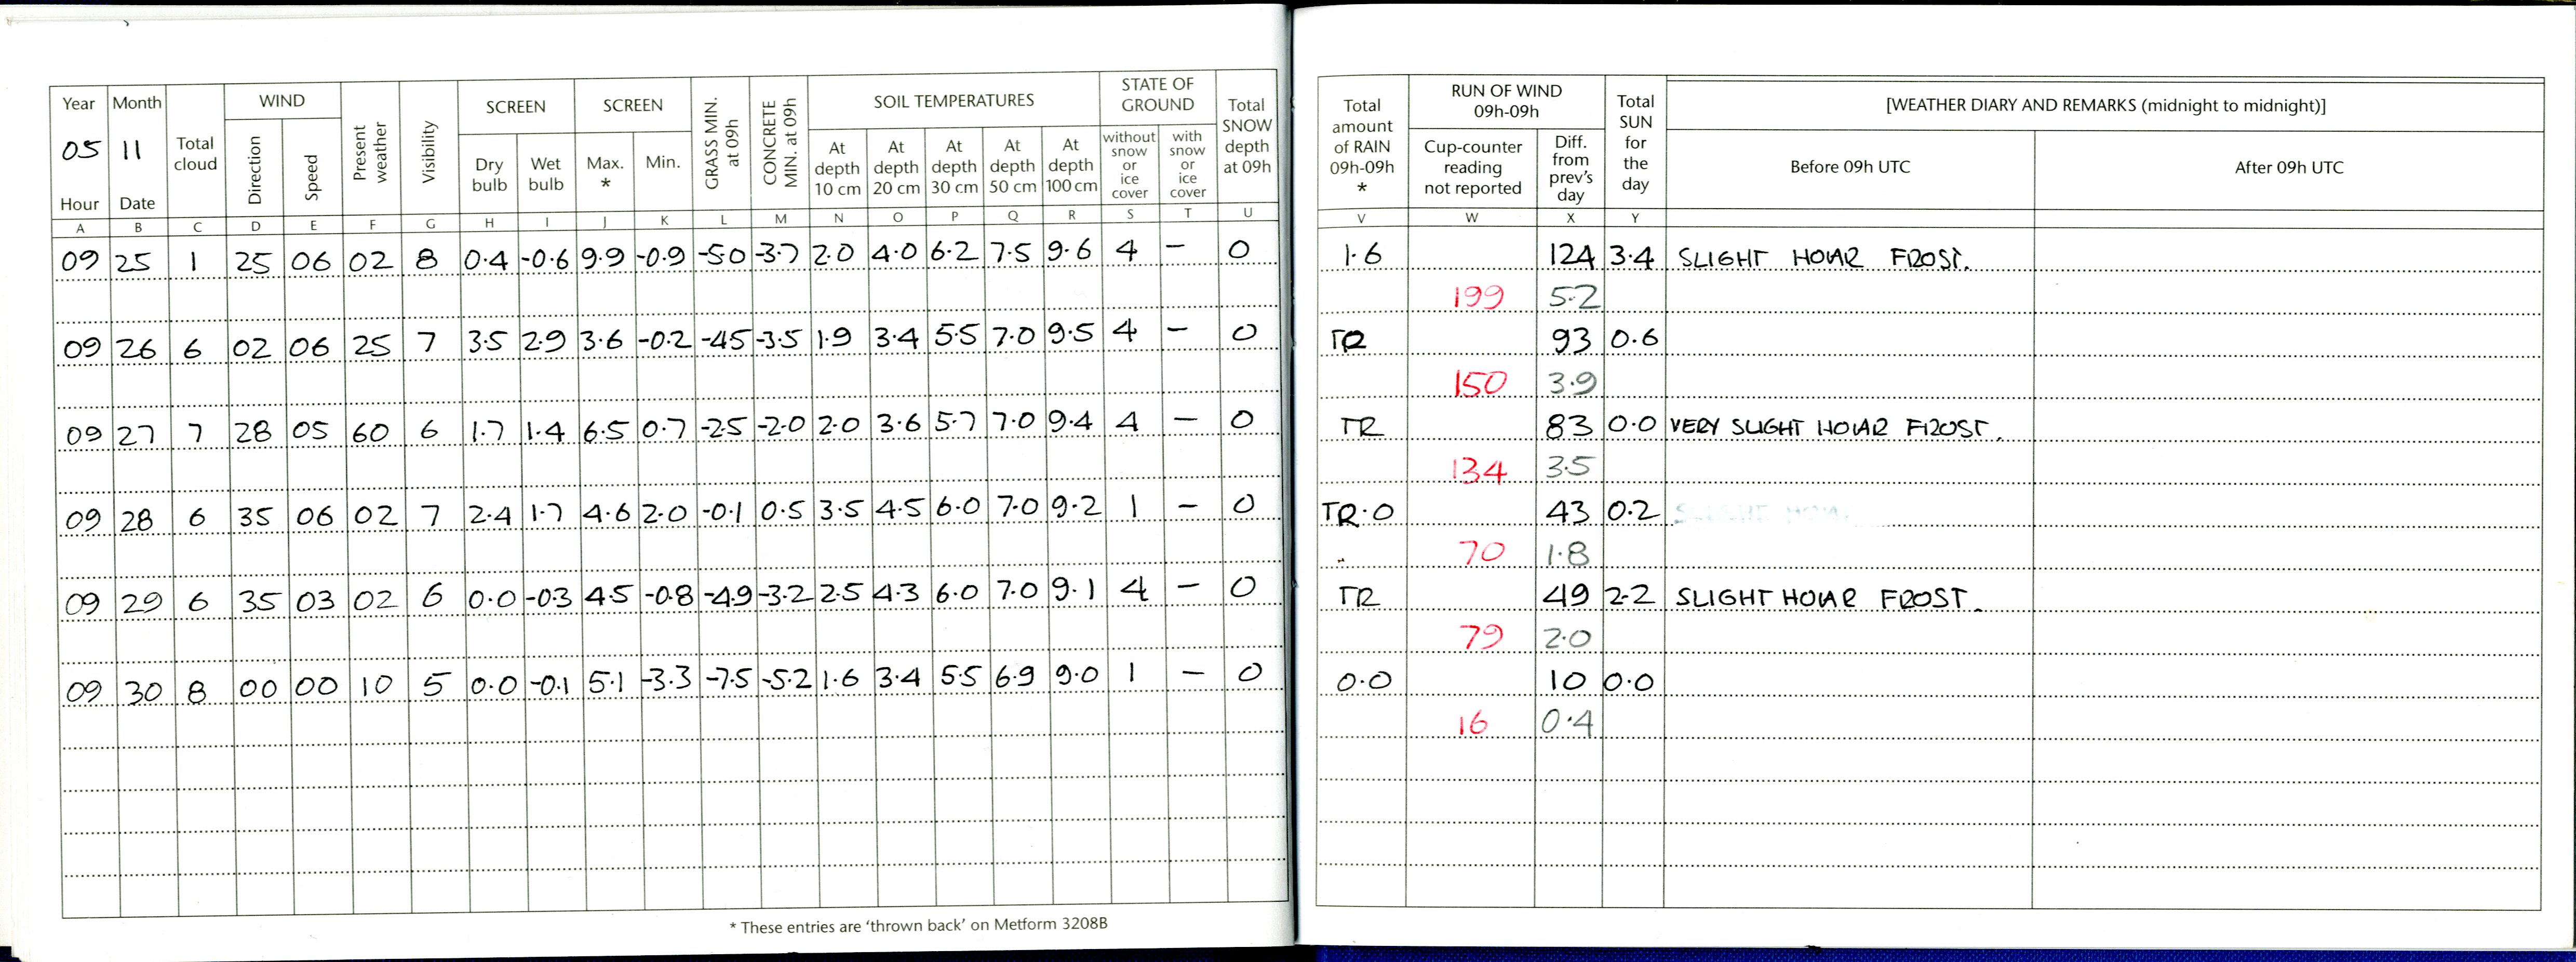 Year Month Total cloud WIND Present weather Visibility SCREEN SCREEN GRASS MIN. at 09h CONCRETE MIN. at 09h SOIL TEMPERATURES STATE OF GROUND Total SNOW depth at 09h
05 11 Direction Speed Dry bulb Wet bulb Max. * Min. At depth 10 cm At depth 20 cm At depth 30 cm At depth 50 cm At depth 100 cm without snow or ice cover with snow or ice cover
Hour Date
A B C D E F G H I J K L M N O P Q R S T U
09 25 1 25 06 02 8 0.4 -0.6 9.9 -0.9 -5.0 -3.7 2.0 4.0 6.2 7.5 9.6 4 – 0
09 26 6 02 06 25 7 3.5 2.9 3.6 -0.2 -4.5 -3.5 1.9 3.4 5.5 7.0 9.5 4 – 0
09 27 7 28 05 60 6 1.7 1.4 6.5 0.7 -2.5 -2.0 2.0 3.6 5.7 7.0 9.4 4 – 0
09 28 6 35 06 02 7 2.4 1.7 4.6 2.0 -0.1 0.5 3.5 4.5 6.0 7.0 9.2 1 – 0
09 29 6 35 03 02 6 0.0 -0.3 4.5 -0.8 -4.9 -3.2 2.5 4.3 6.0 7.0 9.1 4 – 0
09 30 8 00 00 10 5 0.0 -0.1 5.1 -3.3 -7.5 -5.2 1.6 3.4 5.5 6.9 9.0 1 – 0
* These entries are 'thrown back' on Metform 3208B
Total amount of RAIN 09h-09h * RUN OF WIND 09h-09h Total SUN for the day [WEATHER DIARY AND REMARKS (midnight to midnight)]
Cup-counter reading not reported Diff. from prev's day Before 09h UTC After 09h UTC
V W X Y
1.6 124 3.4 SLIGHT HOAR FROST.
199 5.2
TR 93 0.6
150 3.9
TR 83 0.0 VERY SLIGHT HOAR FROST.
134 3.5
TR.0 43 0.2 SLIGHT HOA
70 1.8
TR 49 2.2 SLIGHT HOAR FROST.
79 2.0
0.0 10 0.0
16 0.4